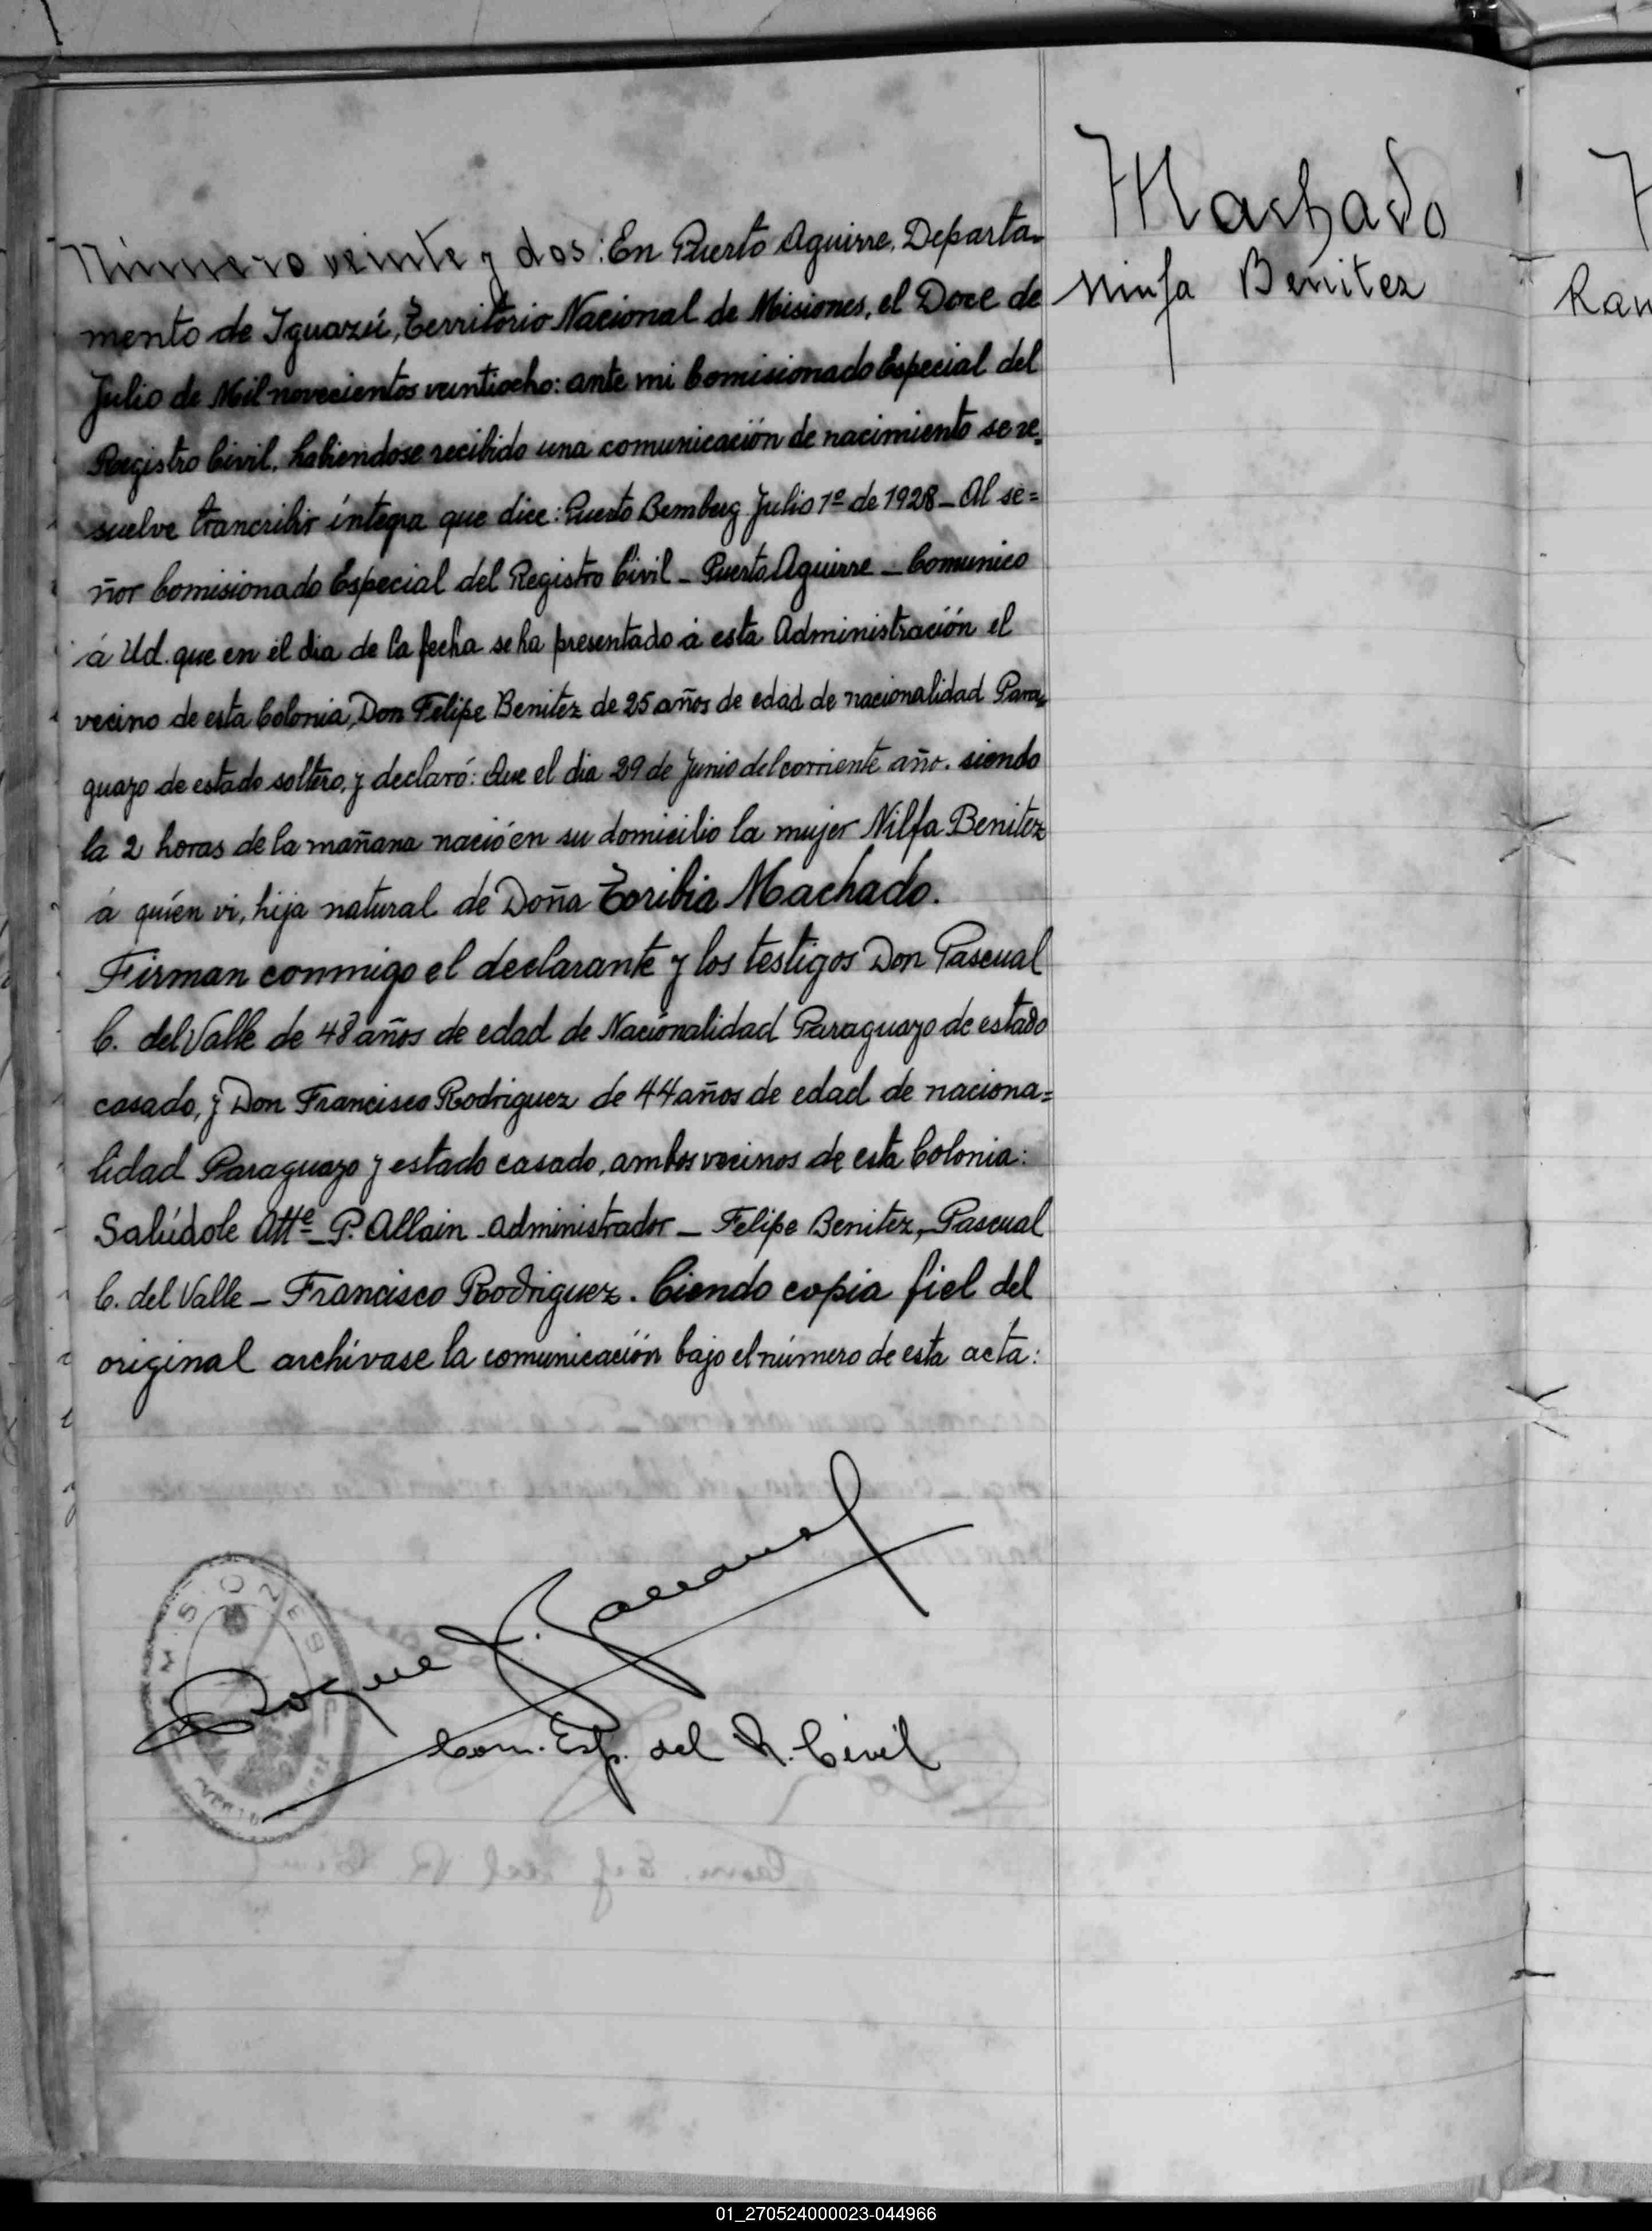 Machado
Ninfa Benitez
Número veinte y dos: En Puerto Aguirre, Departa-
mento de Iguazú, Territorio Nacional de Misiones, el Doce de
Julio de Mil novecientos veintiocho: ante mi Comisionado Especial del
Registro Civil, habiendose recibido una comunicación de nacimiento se re-
suelve trancribir íntegra que dice: Puerto Bemberg Julio 1º de 1928 _ Al se=
ñor Comisionado Especial del Registro Civil _ Puerto Aguirre _ Comunico
á Ud. que en el dia de la fecha se ha presentado á esta Administración el
vecino de esta Colonia, Don Felipe Benitez de 25 años de edad de nacionalidad Para-
guayo de estado soltero, y declaró: Que el dia 29 de Junio del corriente año. siendo
la 2 horas de la mañana nació en su domicilio la mujer Nilfa Benitez
á quíen vi, hija natural de Doña Toribia Machado.
Firman conmigo el declarante y los testigos Don Pascual
C. del Valle de 48 años de edad de Nacionalidad Paraguayo de estado
casado, y Don Francisco Rodriguez de 44 años de edad de naciona=
lidad Paraguayo y estado casado, ambos vecinos de esta Colonia:
Salúdole Atte _ P. Allain _ Administrador _ Felipe Benitez, _ Pascual
C. del Valle _ Francisco Rodriguez. Ciendo copia fiel del
original archívase la comunicación bajo el número de esta acta:
Roque
Com. Esp. del R. Civil
Ran
01_270524000023-044966